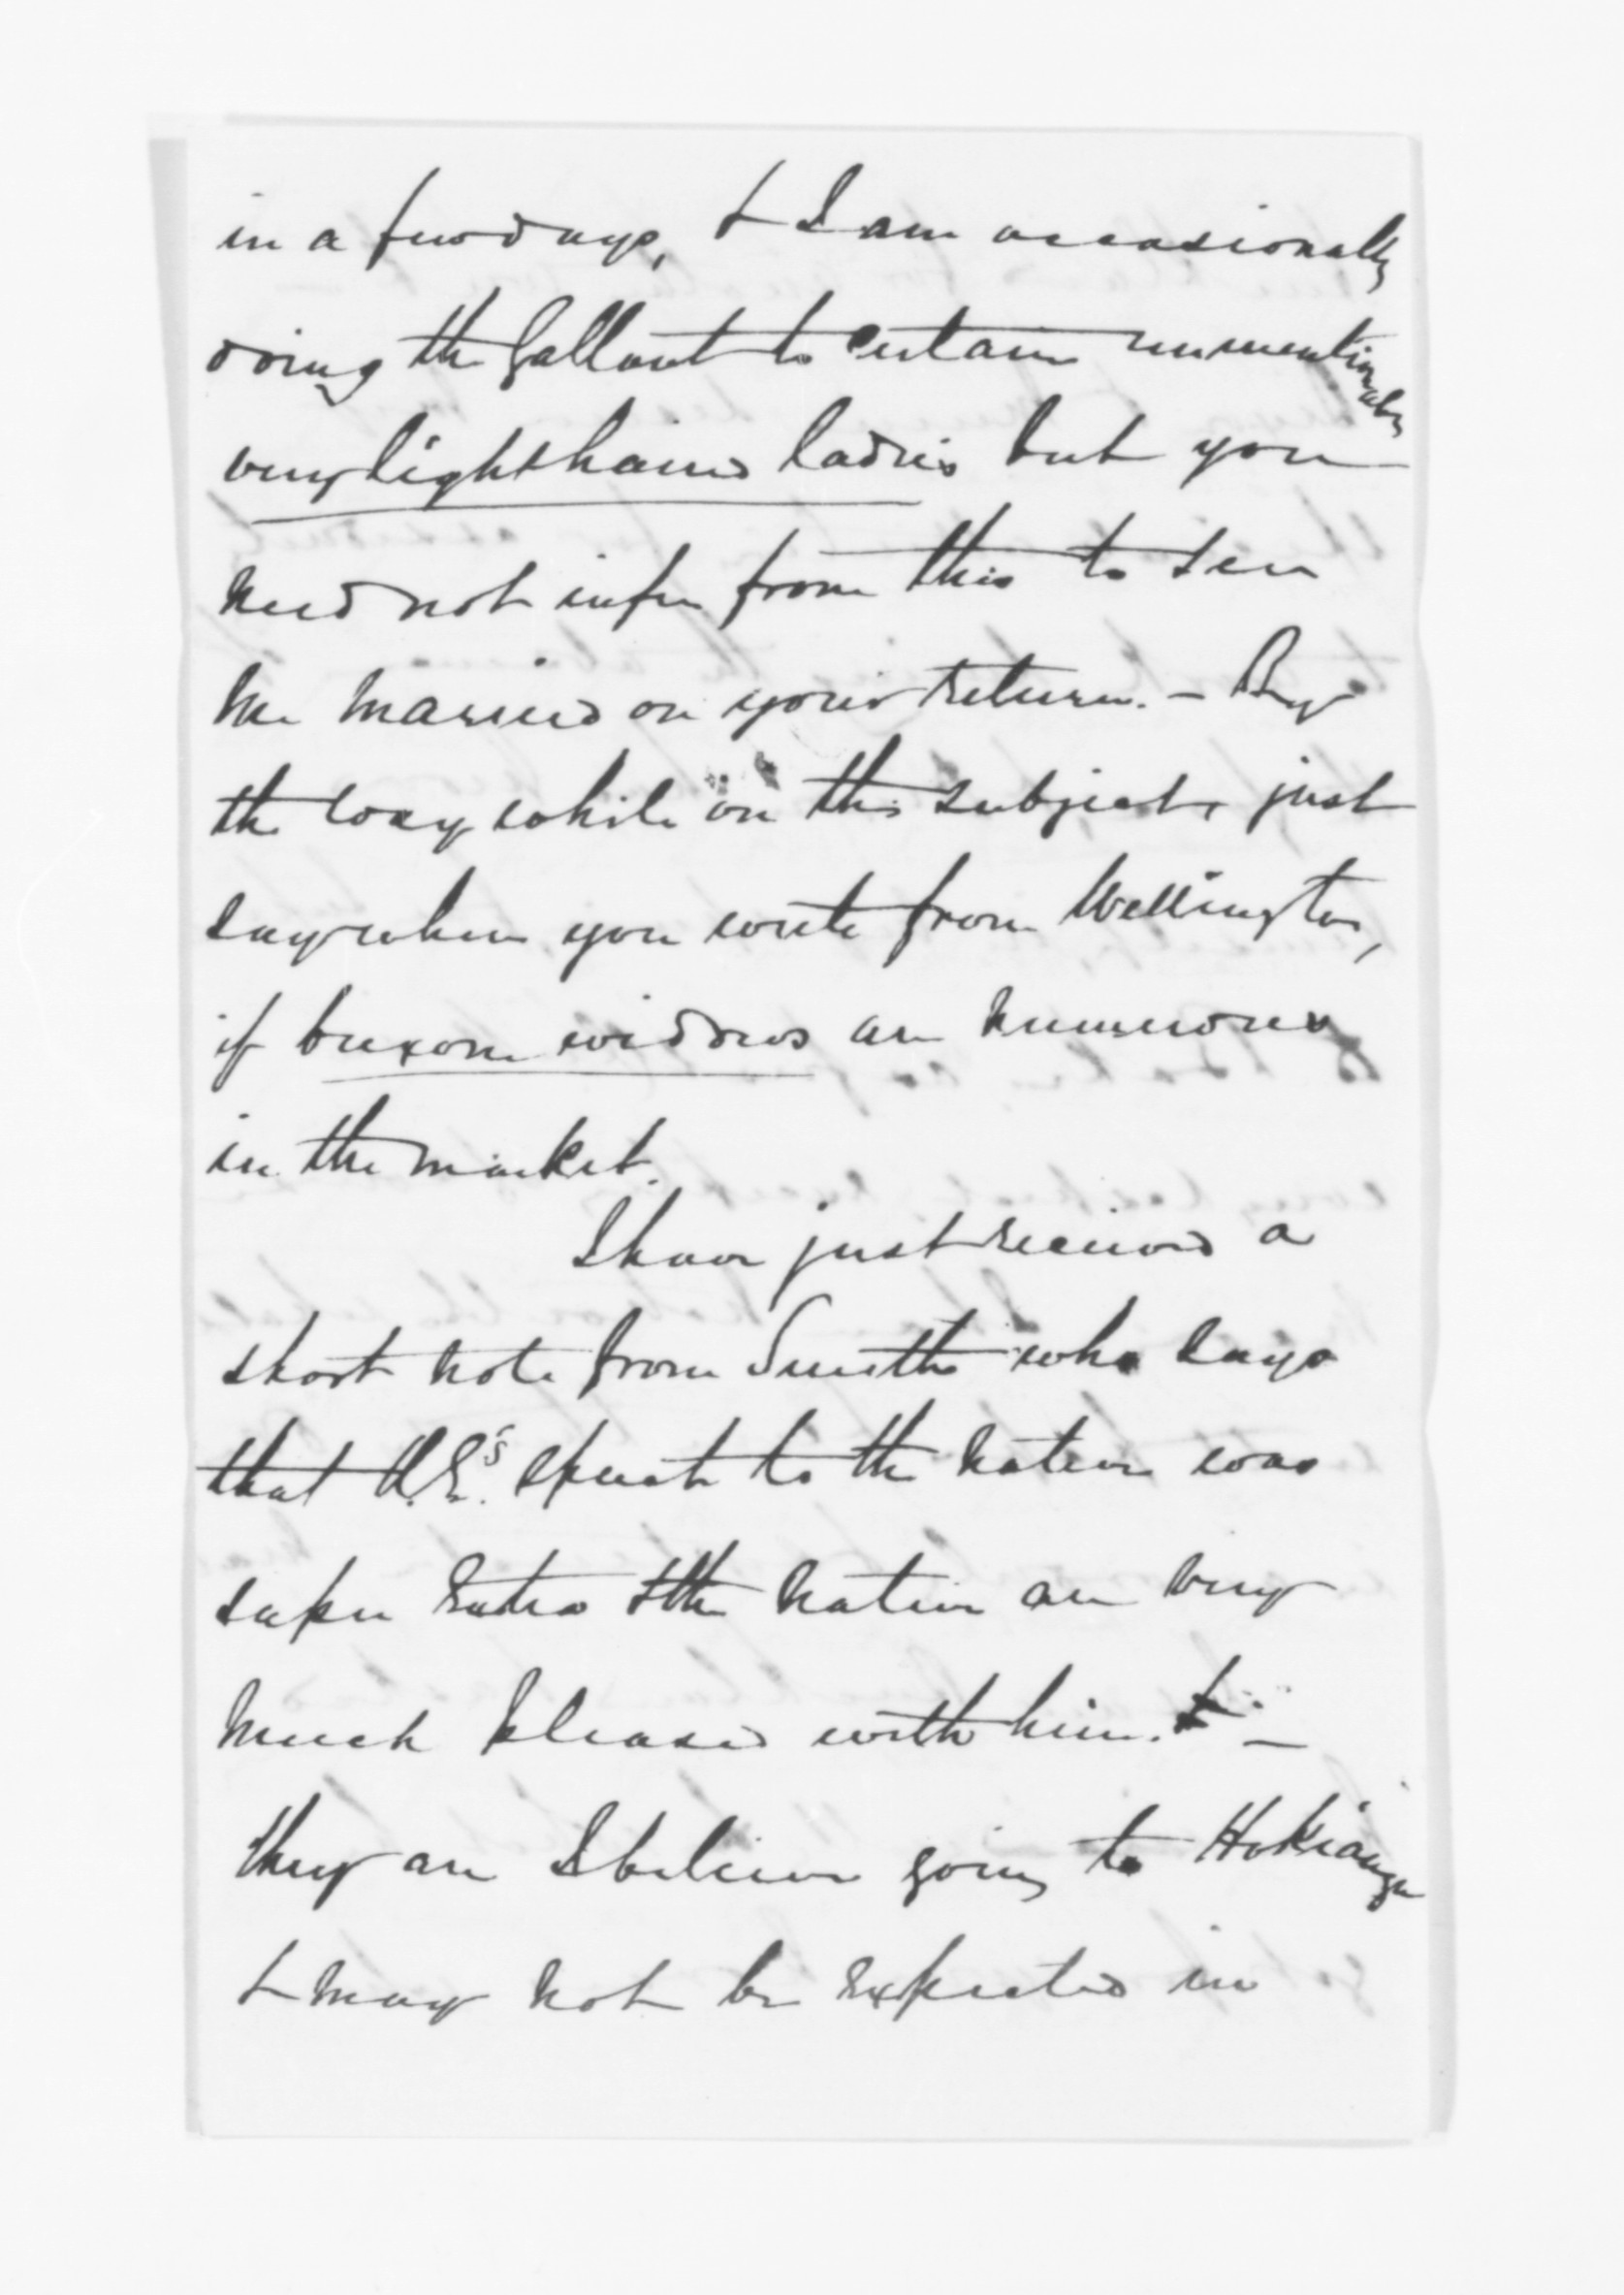 in a few days, & I am occasionally
doing the Gallant to certain unmentionable
very light haired ladies but you
need not infer from this to see
me married on your return. - By
the way while on this subject, just
say when you write from Wellington,
if buxom widows are numerous
in the market.
I have just received a
short note from Smith who says
that H.E.'s speech to the natives was
super extra & the natives are very
much pleased with him. & -
they are I believe going to Hokianga
& may not be expected in